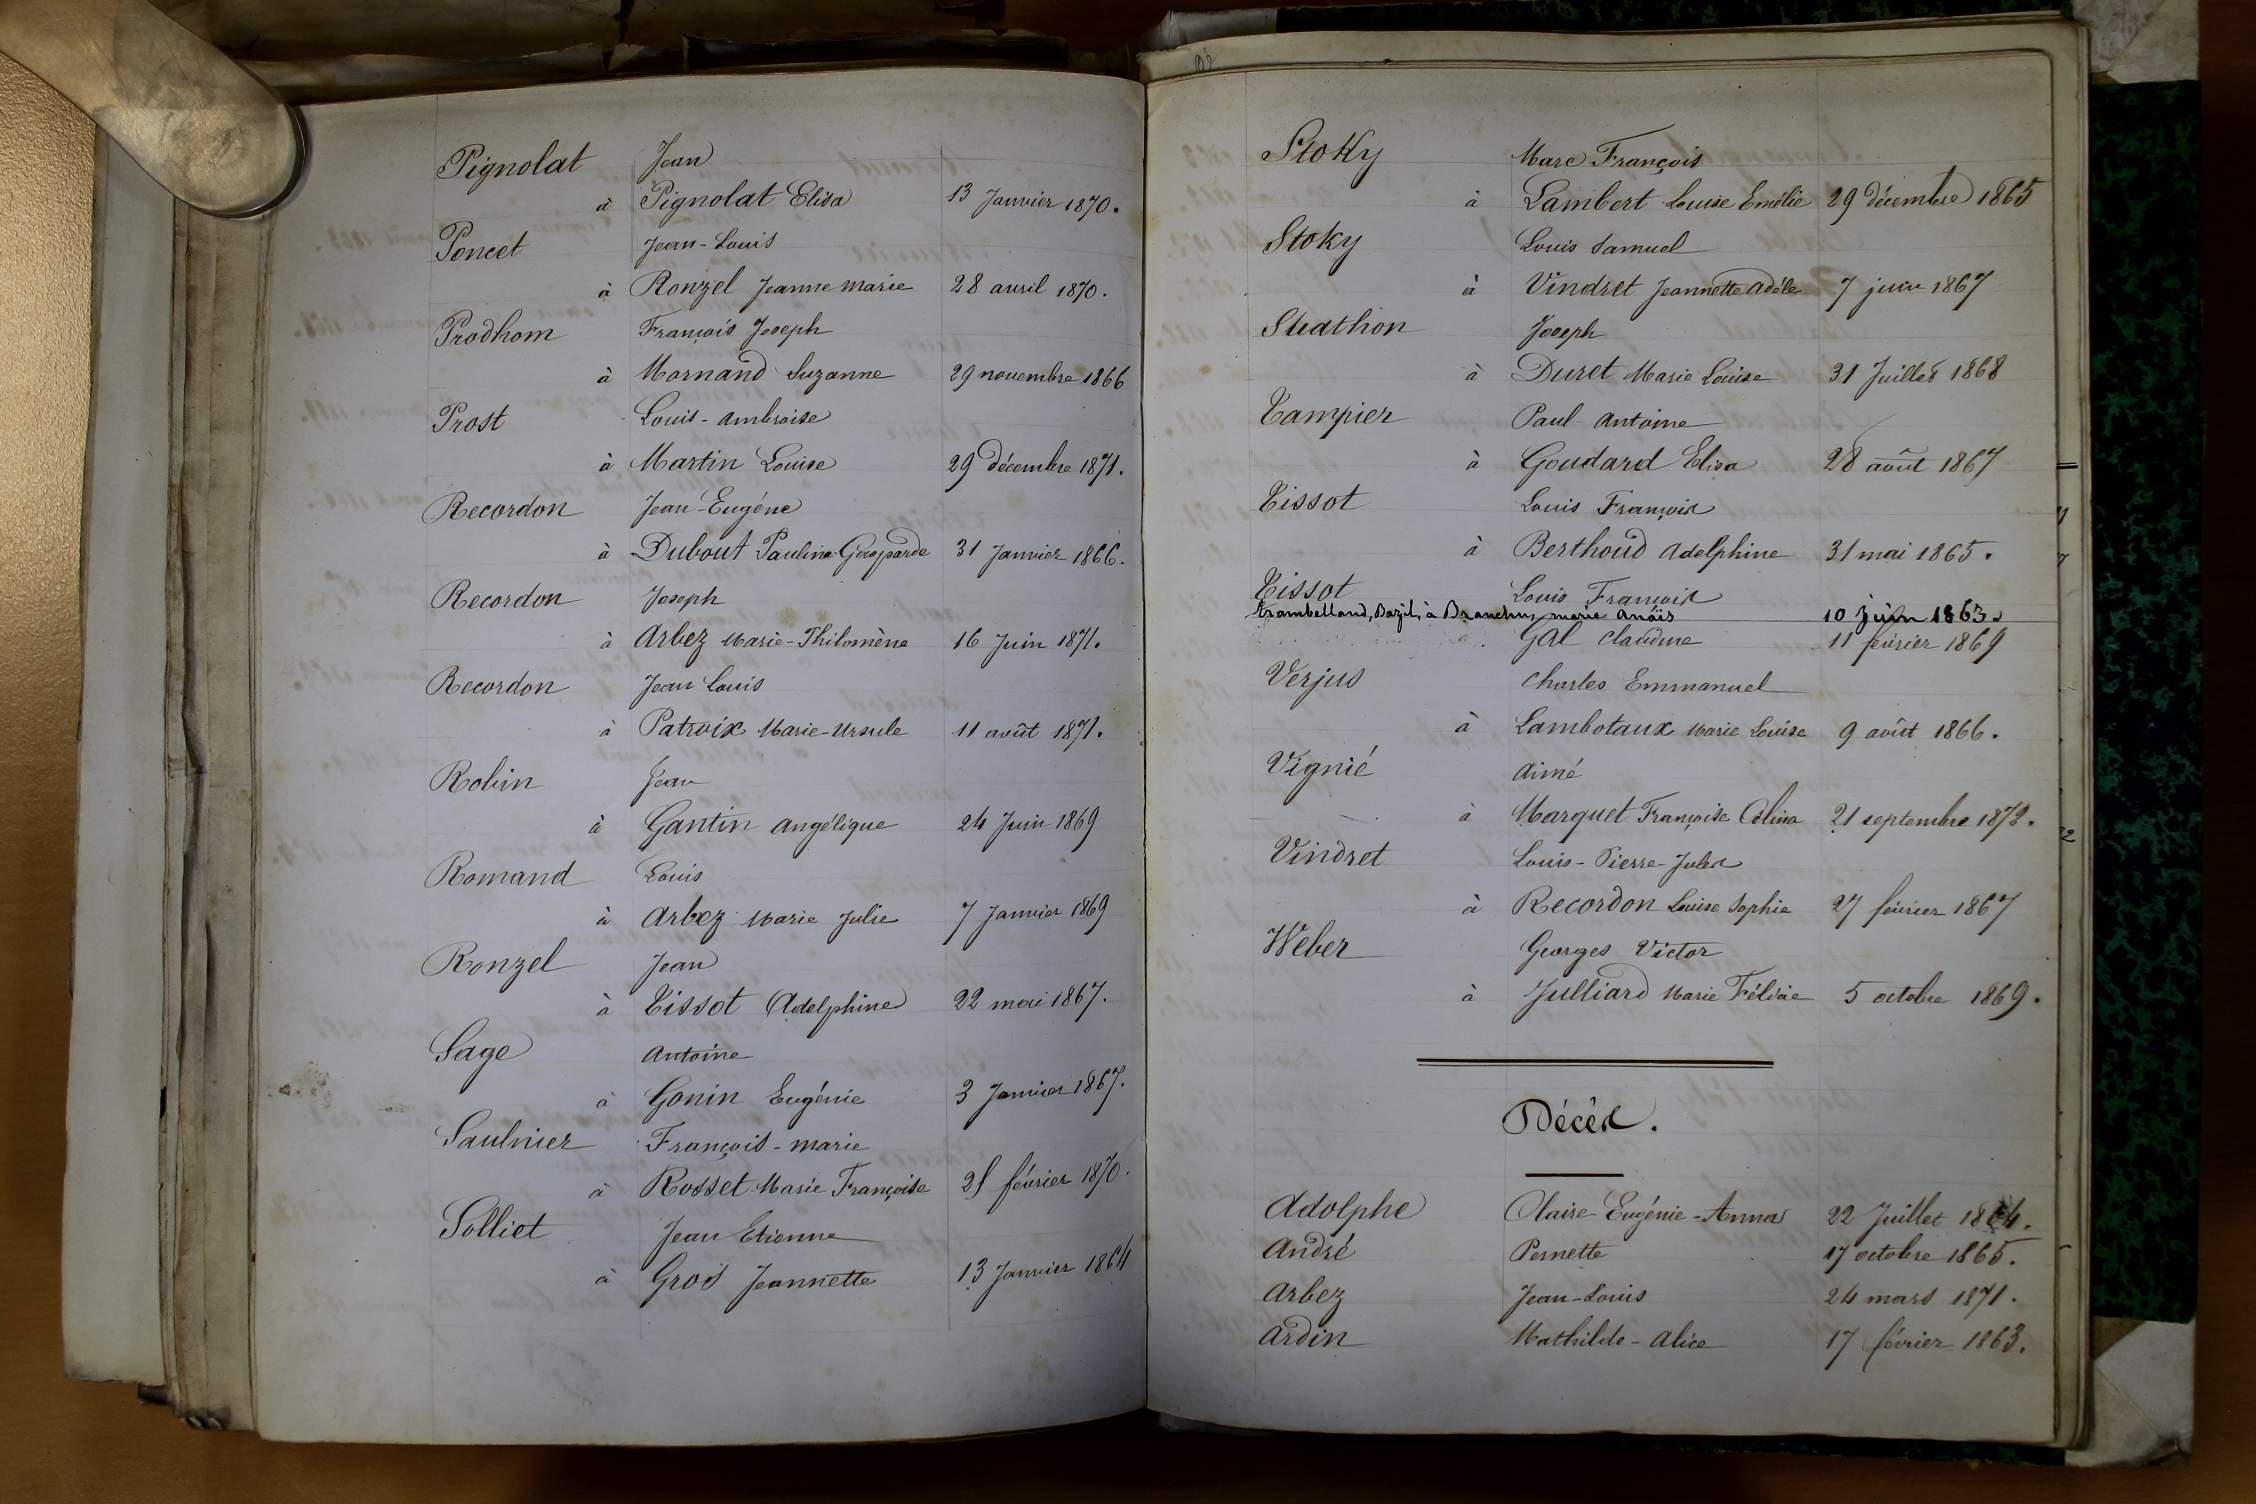 Pignolat Jean
à Pignolat Elisa 13 Janvier 1870.
Poncet Jean-Louis
à Ronzel Jeanne Marie 28 avril 1870.
Prodhom François Joseph
à Mornand Suzanne 29 novembre 1866
Prost Louis-Ambroise
à Martin Louise 29 décembre 1871.
Recordon Jean-Eugène
à Dubout Pauline Gasparde 31 Janvier 1866.
Recordon Joseph
à Arbez Marie-Philomène 16 Juin 1871.
Recordon Jean Louis
à Patroix Marie-Ursule 11 août 1871.
Robin Jean
à Gantin Angélique 24 Juin 1869
Romand Louis
à Arbez Marie Julie 7 Janvier 1869
Ronzel Jean
à Tissot Adelphine 22 mai 1867.
Sage Antoine
à Gonin Eugénie 3 Janvier 1867.
Saulnier François-Marie
à Rosset Marie Françoise février 1870.
Solliet Jean Etienne
à Grois Jeannette 13 Janvier 1864
Stoky Marc François
à Lambert Louise Emélie 29 décembre 1865
Stoky Louis Samuel
à Vindret Jeannette Adèle 7 juin 1867
Joseph
à Duret Marie Louise 31 Juillet 1868
Tampier Paul Antoine
à Goudard Elisa 28 août 1867
Tissot Louis François
à Berthoud Adelphine 31 mai 1865.
Tissot Louis François
Trambelland, Bazil, à Branchu, marie Anaïs 10 juin 1863.
Gal Claudine 11 février 1869
Verjus Charles Emmanuel
à Lambotaux Marie Louise 9 août 1866.
Vignié Aimé
à Marquet Françoise Célina 21 septembre 1872.
Vindret Louis-Pierre-Jules
à Recordon Louise Sophie 27 février 1867
Weber Georges Victor
à Julliard Marie Félicie 5 octobre 1869.
Décès.
Adolphe Claire-Eugénie-Anna 22 Juillet 1864.
André Pernette 17 octobre 1865.
Arbez Jean-Louis 24 mars 1871.
Ardin Mathilde-Alice 17 février 1863.